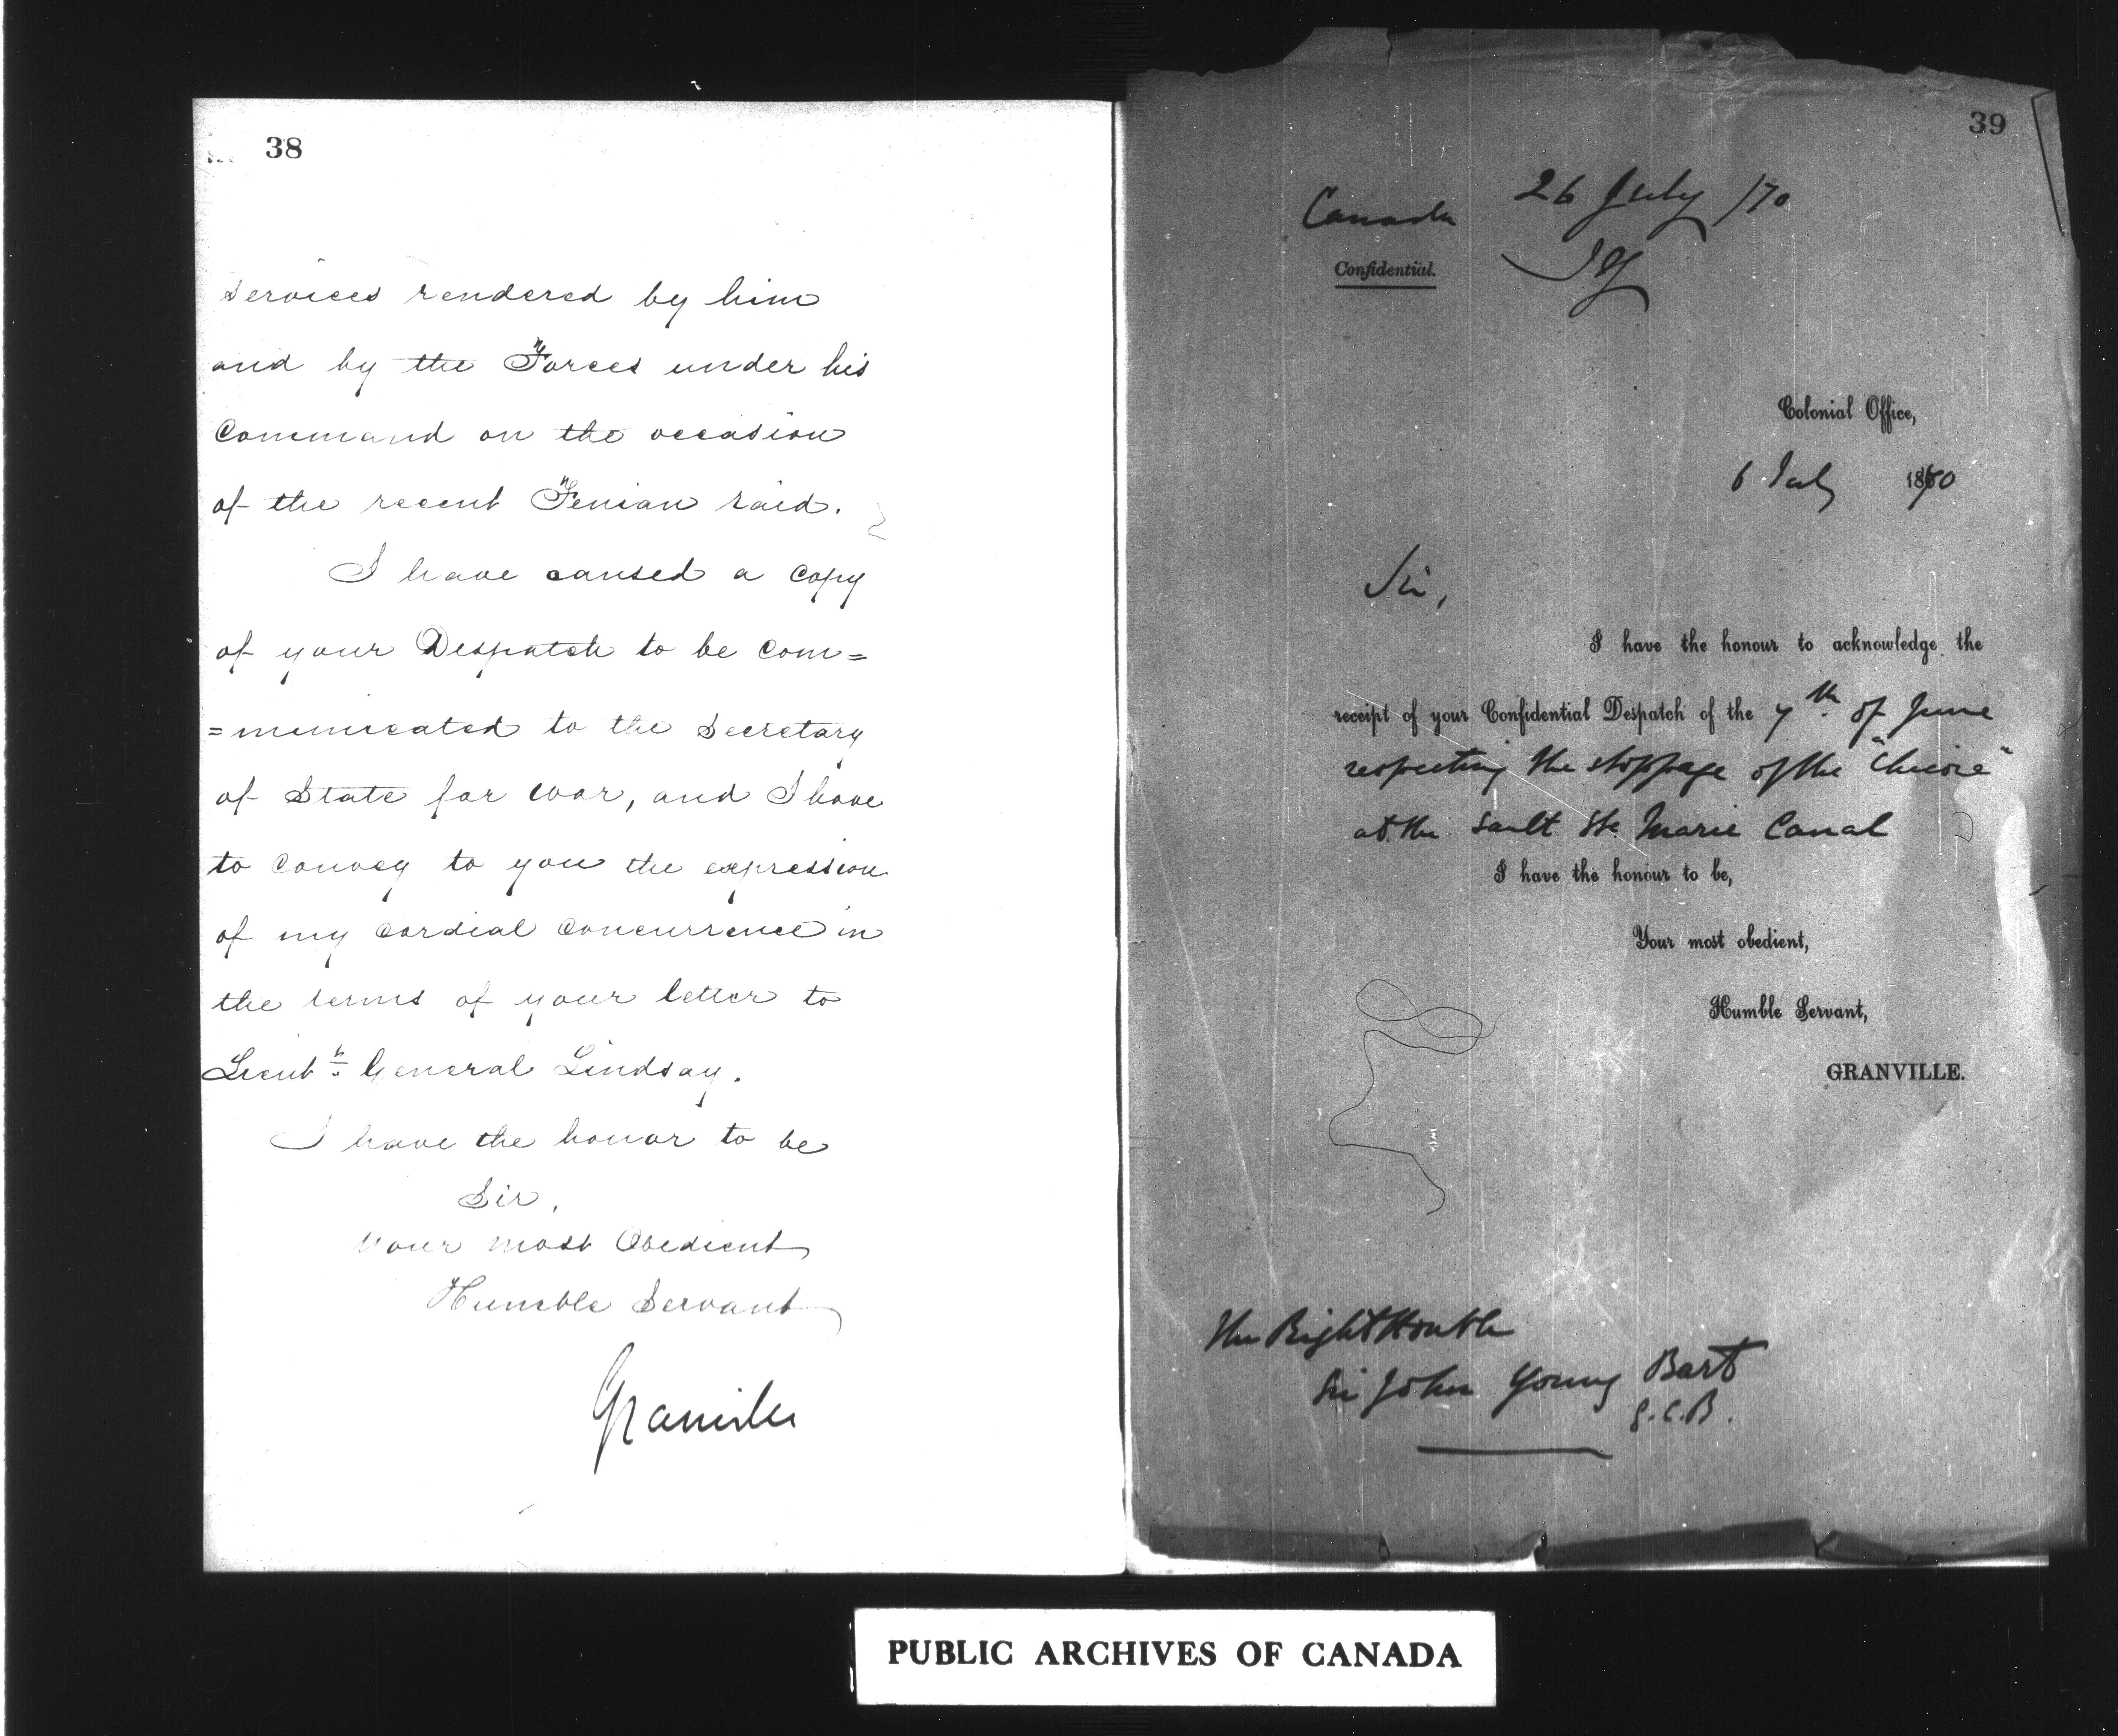 38
services rendered by him
and by the Forces under his
Command on the occasion
of the recent Fenian raid.
I have caused a copy
of your Despatch to be com=
=municated to the Secretary
of State for War, and I have
to convey to you the expression
of my cordial concurrence in
the terms of your letter to
Lieut.t General Lindsay.
I have the honor to be
Sir,
Your most Obedient
Humble Servant
Granville
39
Canada 26 July /70
Confidential. JY
Colonial Office,
6 July 1870
Sir,
I have the honour to acknowledge the
receipt of your Confidential Despatch of the 7th of June
respecting the stoppage of the "Chicora"
at the Sault Ste Marie Canal
I have the honour to be,
Your most obedient,
Humble Servant,
GRANVILLE.
The Right Honble
Sir John Young Bart
G.C.B.
PUBLIC ARCHIVES OF CANADA